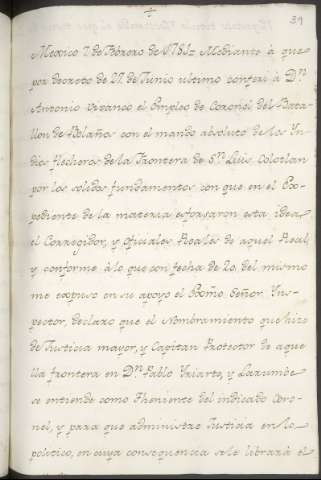 39
Mexico 7 de Febrero de Mediante à que
por decreto de 27 de Junio ultimo conferi à Dn.
Antonio Vivanco el Empleo de Coronel del Bata-
llon de Bolaños con el mando absoluto de los Yn-
dios flecheros de la Frontera de Sn. Luis Colotlan
por los solidos fundamentos con que en el Exp-
pediente de la materia esforsaron esta idea
el Corregidor, y Oficiales Reales de aquel Real,
y conforme à lo que con fecha de 20 del mismo
me expuso en su apoyo el Exmo. Señor Yns-
pector, declaro que el Nombramiento que hize
de Justicia mayor, y Capitan Protector de aque-
lla frontera en Dn. Pablo Yriarte, y Laxumbe
se entiende como Theniente del indicado Coro-
nel, y para que administre Justicia en lo
politico, en cuya consequencia se le librarà el